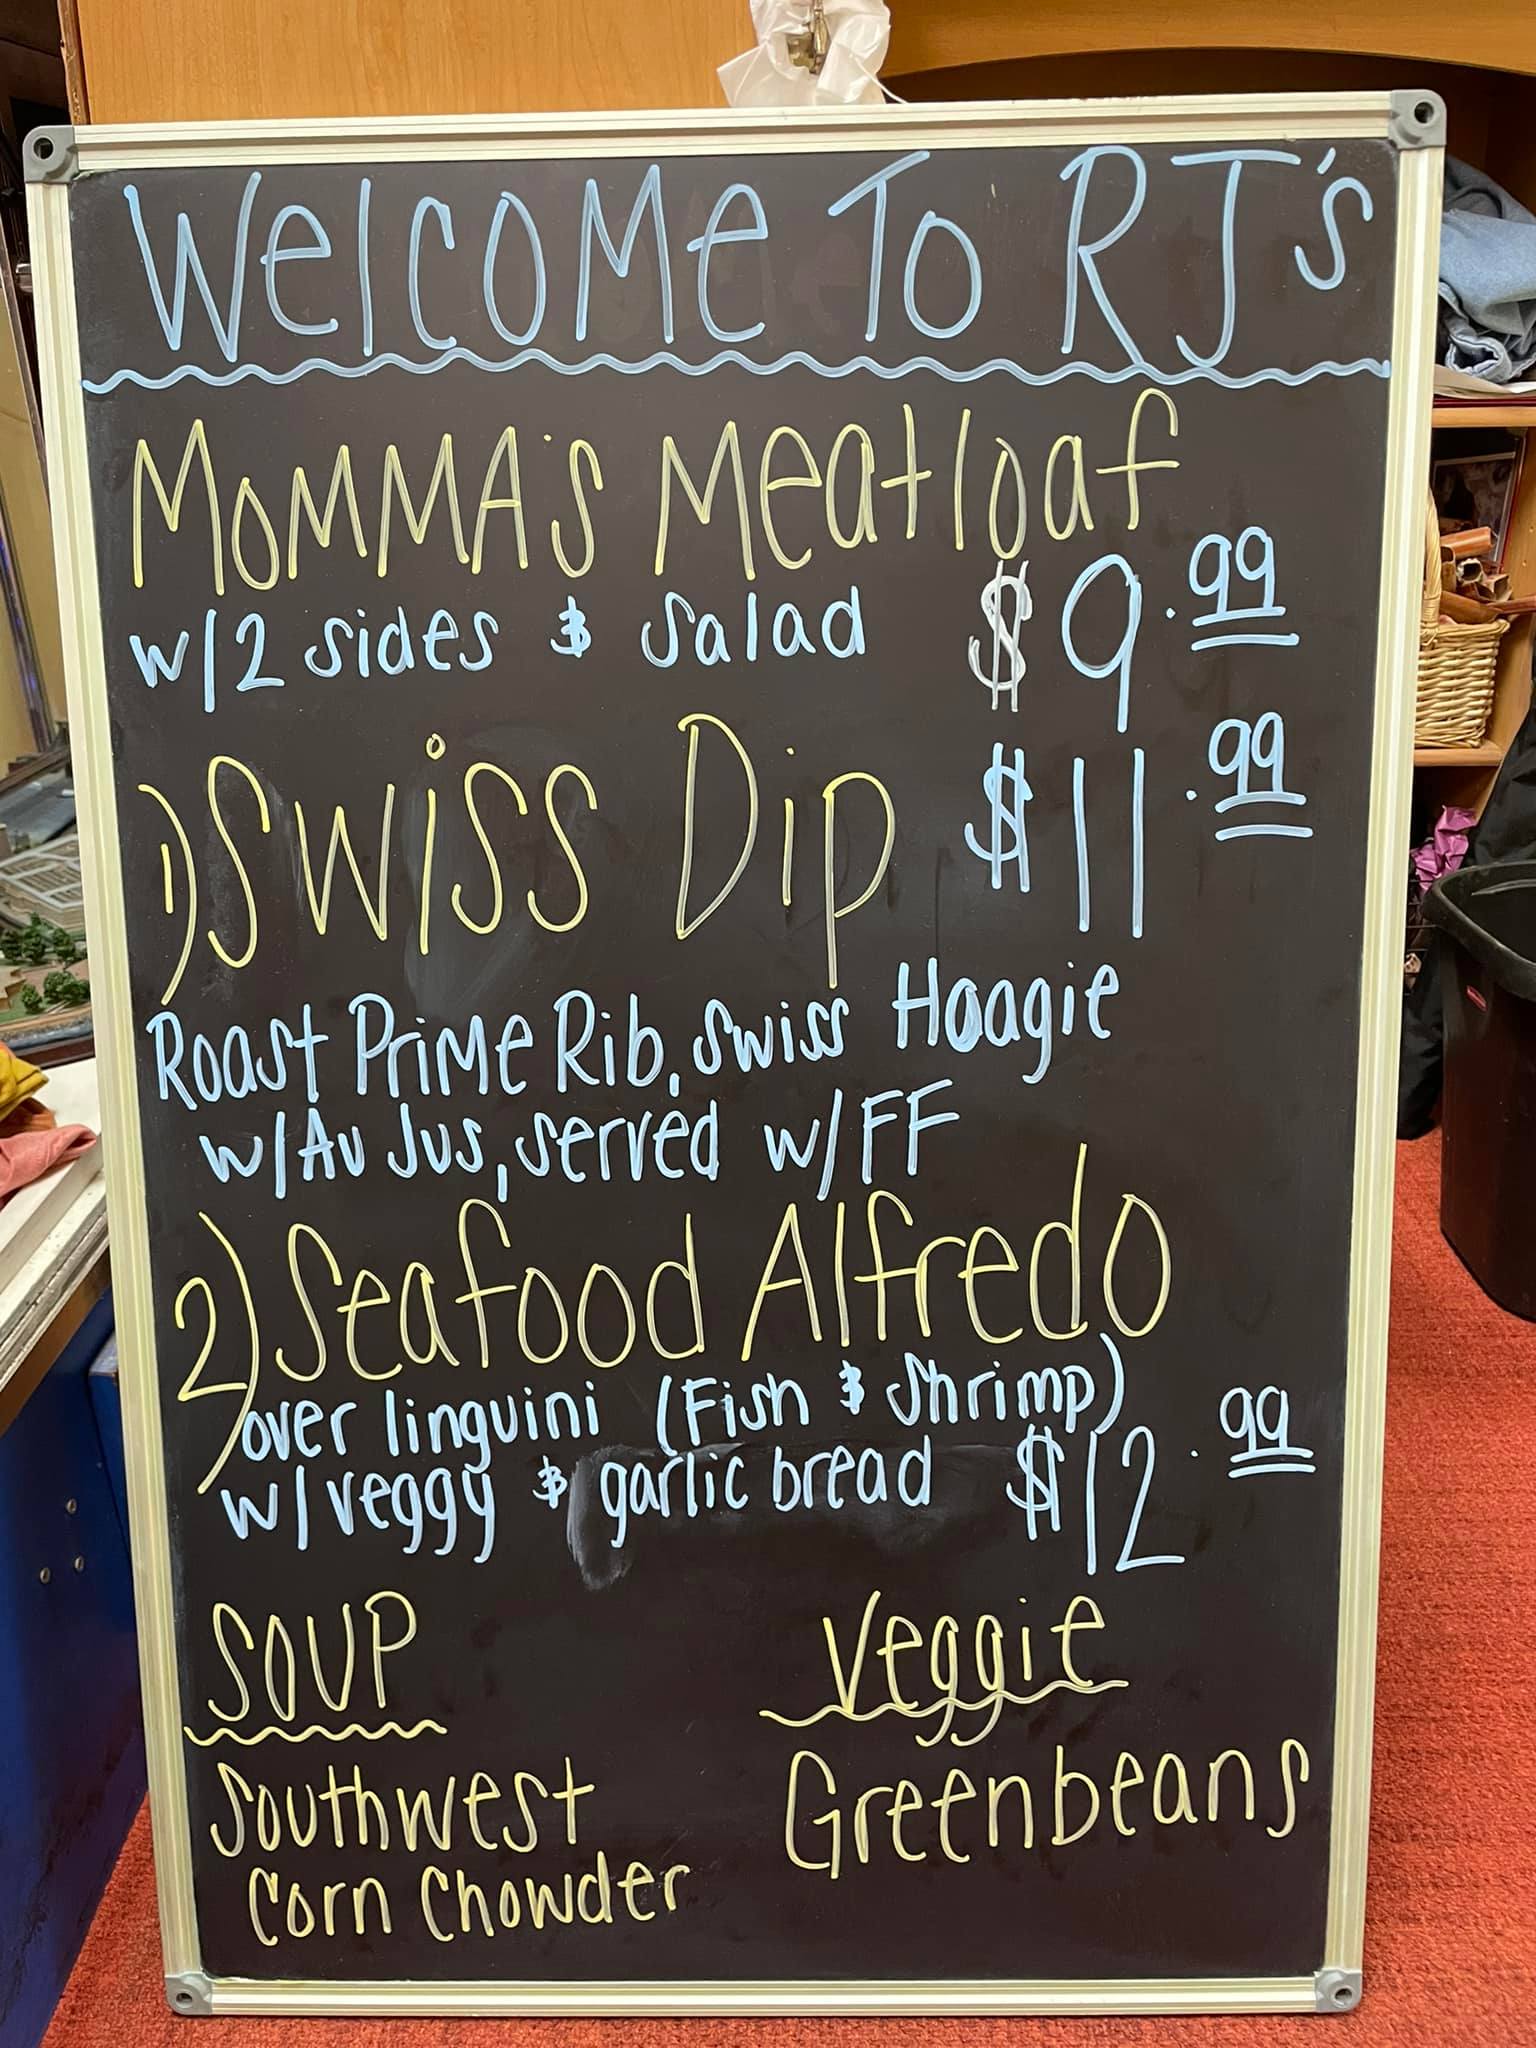 Welcome To RJ's
Momma's Meatloaf
w/2 sides & Salad $9.99
1) Swiss Dip $11.99
Roast Prime Rib, Swiss Hoagie
w/Au Jus, served w/FF
2) Seafood Alfredo
over linguini (Fish & Shrimp)
w/veggy & garlic bread $12.99
SOUP
Southwest
Corn Chowder
Veggie
Greenbeans